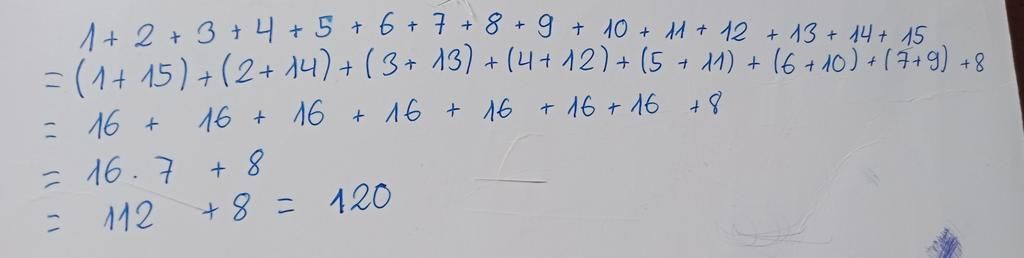 1 + 2 + 3 + 4 + 5 + 6 + 7 + 8 + 9 + 10 + 11 + 12 + 13 + 14 + 15
= (1 + 15) + (2 + 14) + (3 + 13) + (4 + 12) + (5 + 11) + (6 + 10) + (7+9) + 8
= 16 + 16 + 16 + 16 + 16 + 16 + 16 + 8
= 16 . 7 + 8
= 112 + 8 = 120